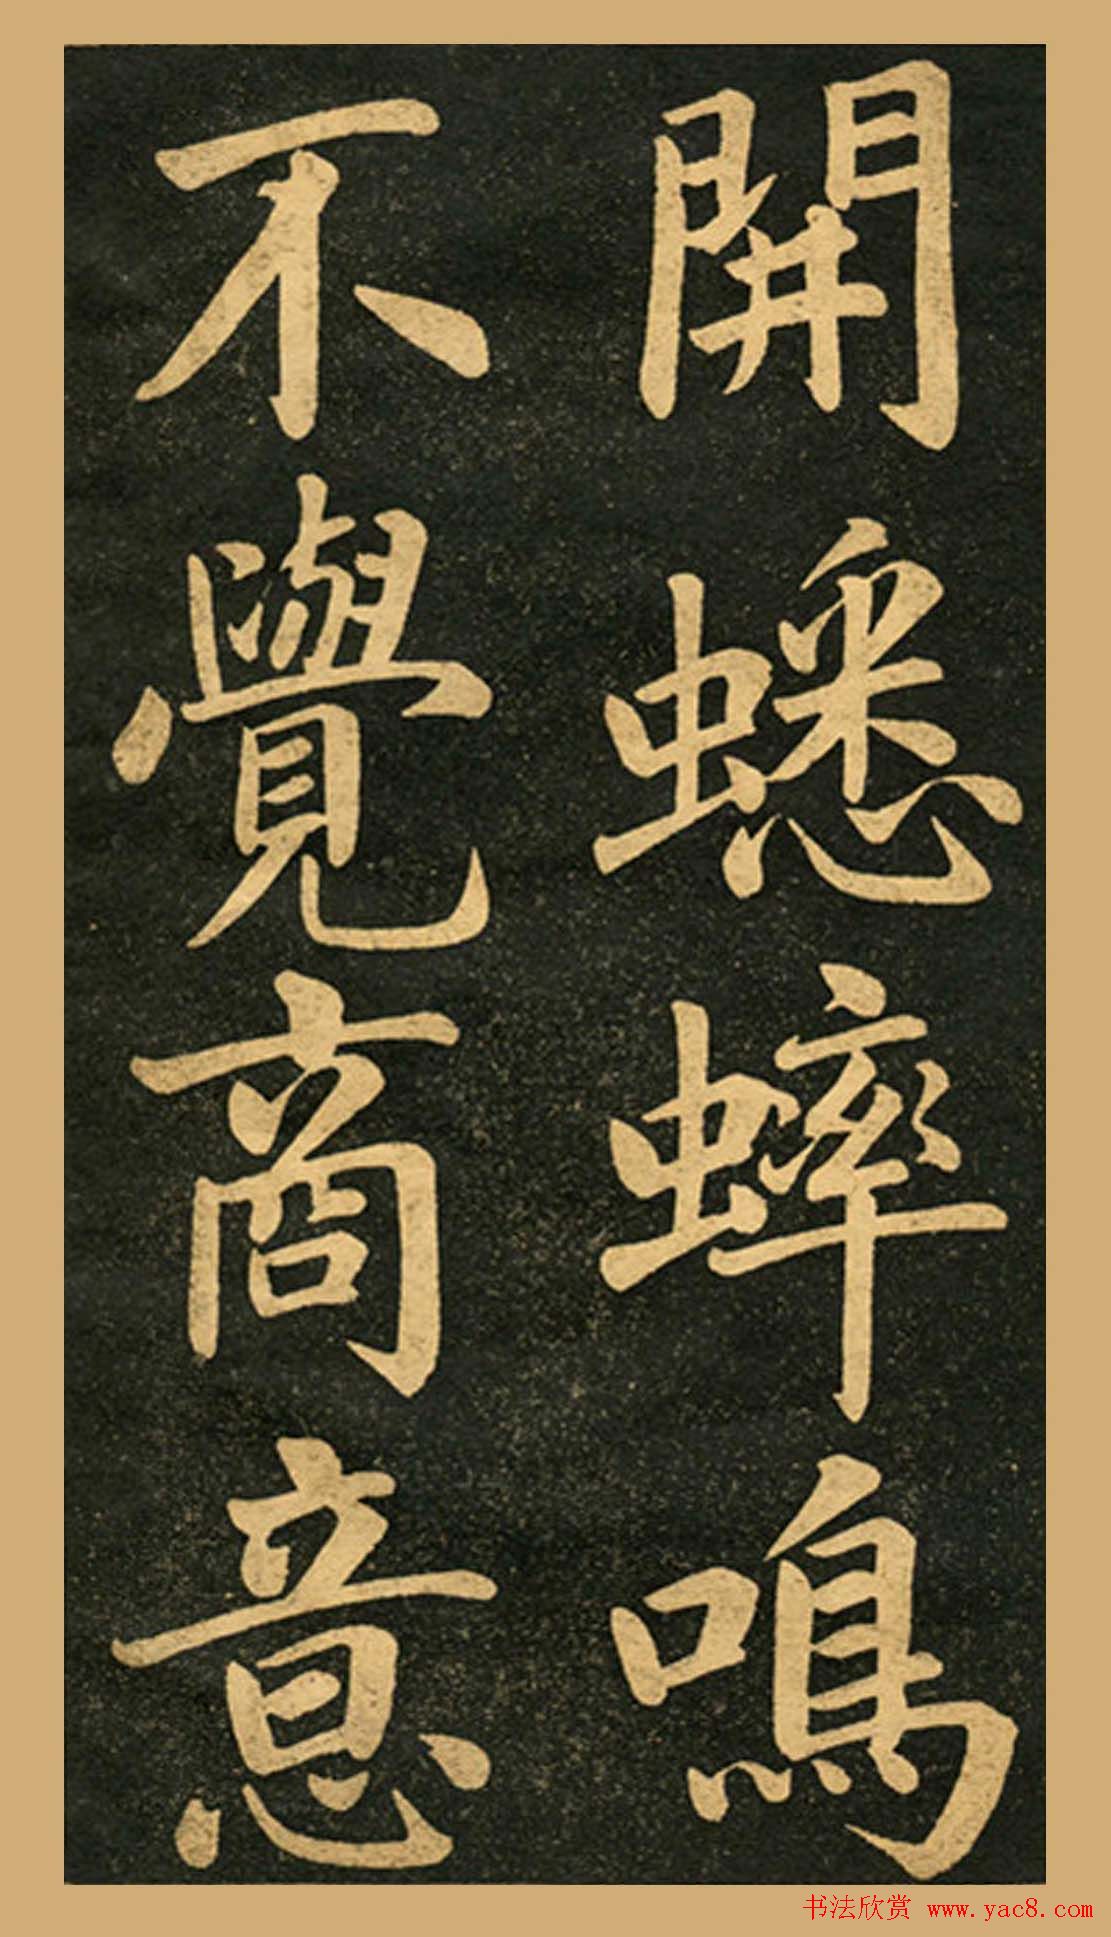 開蟋蟀鳴
不覺商意
书法欣赏 www.yac8.com